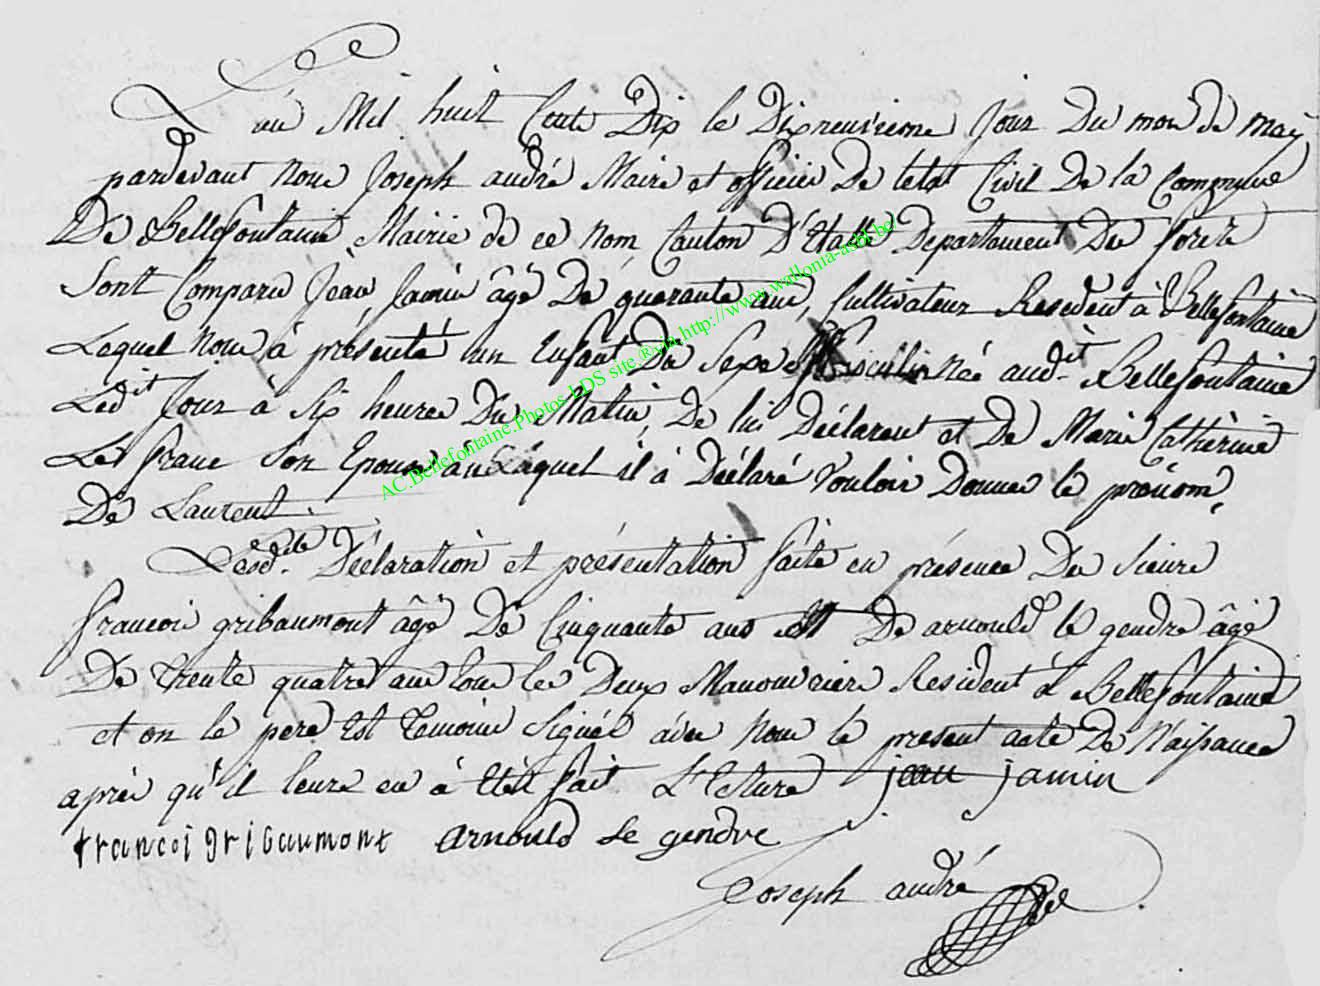 L'an Mil huit Cent Dix le Dixneuvieme Jour Du mois de may
pardevant Nous Joseph andré Maire et officier De letat Civil De la Commune
De Bellefontaine Mairie de ce Nom, Canton D'Etalle Departement Des foretz
Sont Comparu Jean Jamin âgé De quarante ans, Cultivateur Resident à Bellefontaine
Lequel Nous à présenté un Enfant Du Sexe Masculin Née aud.it Bellefontaine
Ledit Jour à Six heures Du Matin, De lui Déclarent et De Marie Catherine
Le franc Son Epouse auLaquel il à Déclaré Vouloir Donner le prénom,
De Laurent.
Lesd.ite Déclaration et présentation faite en présence Des Sieurs
francois gribaumont âgé De Cinquante ans et De arnould le gendre âgé
De trente quatre ans tous les Deux Manouvriers Resident à Bellefontaine
et on le pere Est temoins Signés avec Nous le present acte De Naissance
après qu'il leurs en à Etés fait L'Ecture jean jamin
francoi gribaumont Arnould Le gendre
Joseph andré
AC.Bellefontaine.Photos LDS site ®via.http://www.wallonia-asbl.be